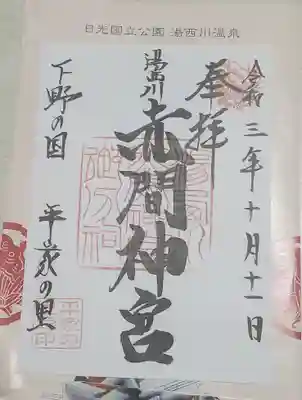 日光国立公園 湯西川温泉
奉拝
令和三年十月十一日
湯西川
赤間神宮
下野の国
平家の里